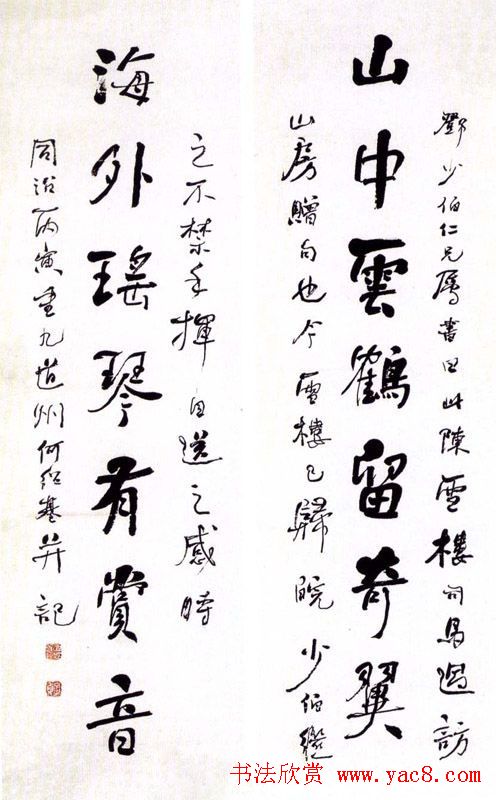 鄧少伯仁兄屬書曰此陳雪樓司馬過訪
山中雲鶴留奇翼
山房贈句也今雪樓已歸皖少伯繼
之不禁手揮目送之感時
海外瑤琴有賞音
同治丙寅重九道州何紹基并記
书法欣赏 www.yac8.com